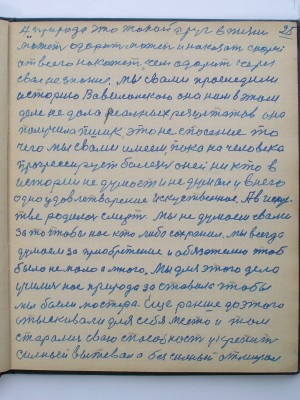 25
А природа это такой друг в жизни
может одарит может и наказат скорей
от всего накажет чем одарит через
свое незнание. Мы с вами проследили
историю Вавилонского она нам в этом
деле не дала реальных результатов она
получила пшик это не спасение то
чего мы с вами имеем пока на человека
прогрессирует болезн о ней ни кто в
истории не думает и не думал у него
одно удовлетворение искуственное. А в искус
тве родилас смерт. Мы не думаем с вами
за то чтобы нас кто либо сохранил. мы всегда
думаем за приобретение и обязателно чтоб
было не мало а много. Мы для этого дела
учились нас природа заставила чтобы
мы были мастера. Еще раньше до этого
отыскивали для себя место и там
старалис свою способност укрепит
сильный вытевал а без сильный отмирал